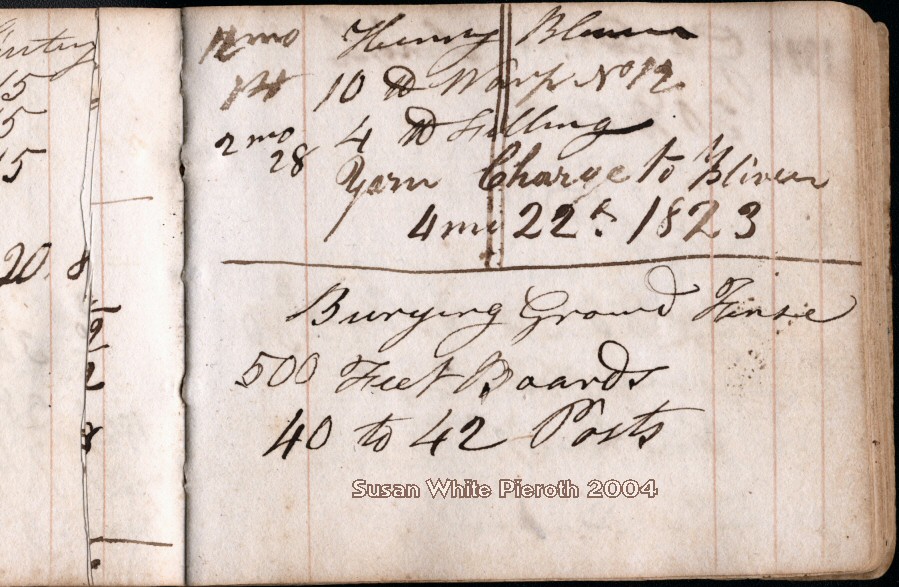 15
5
15
20 8
9
2
8
12 mo Henry Bliven
14 10 lb Warp No 12
2 mo 4 lb Filling
28
Yarn Charge to Bliven
4 mo 22d 1823
Burying Ground Fense
500 Feet Boards
40 to 42 Posts
Susan White Pieroth 2004